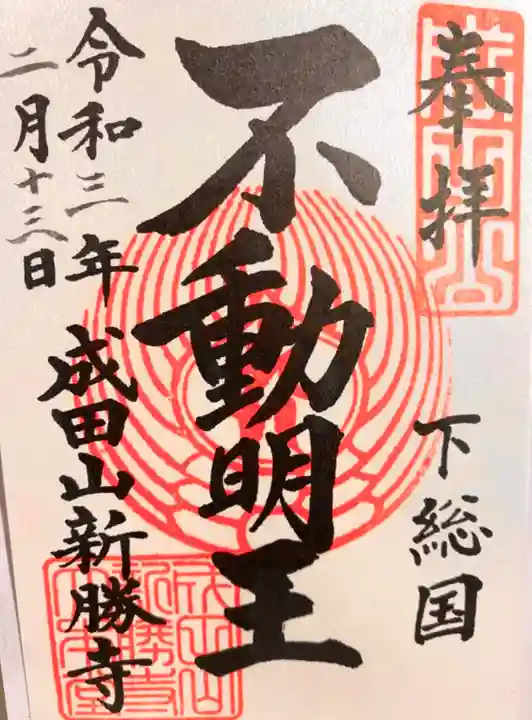 奉拝
下総国
不動明王
令和三年
二月十三日
成田山新勝寺